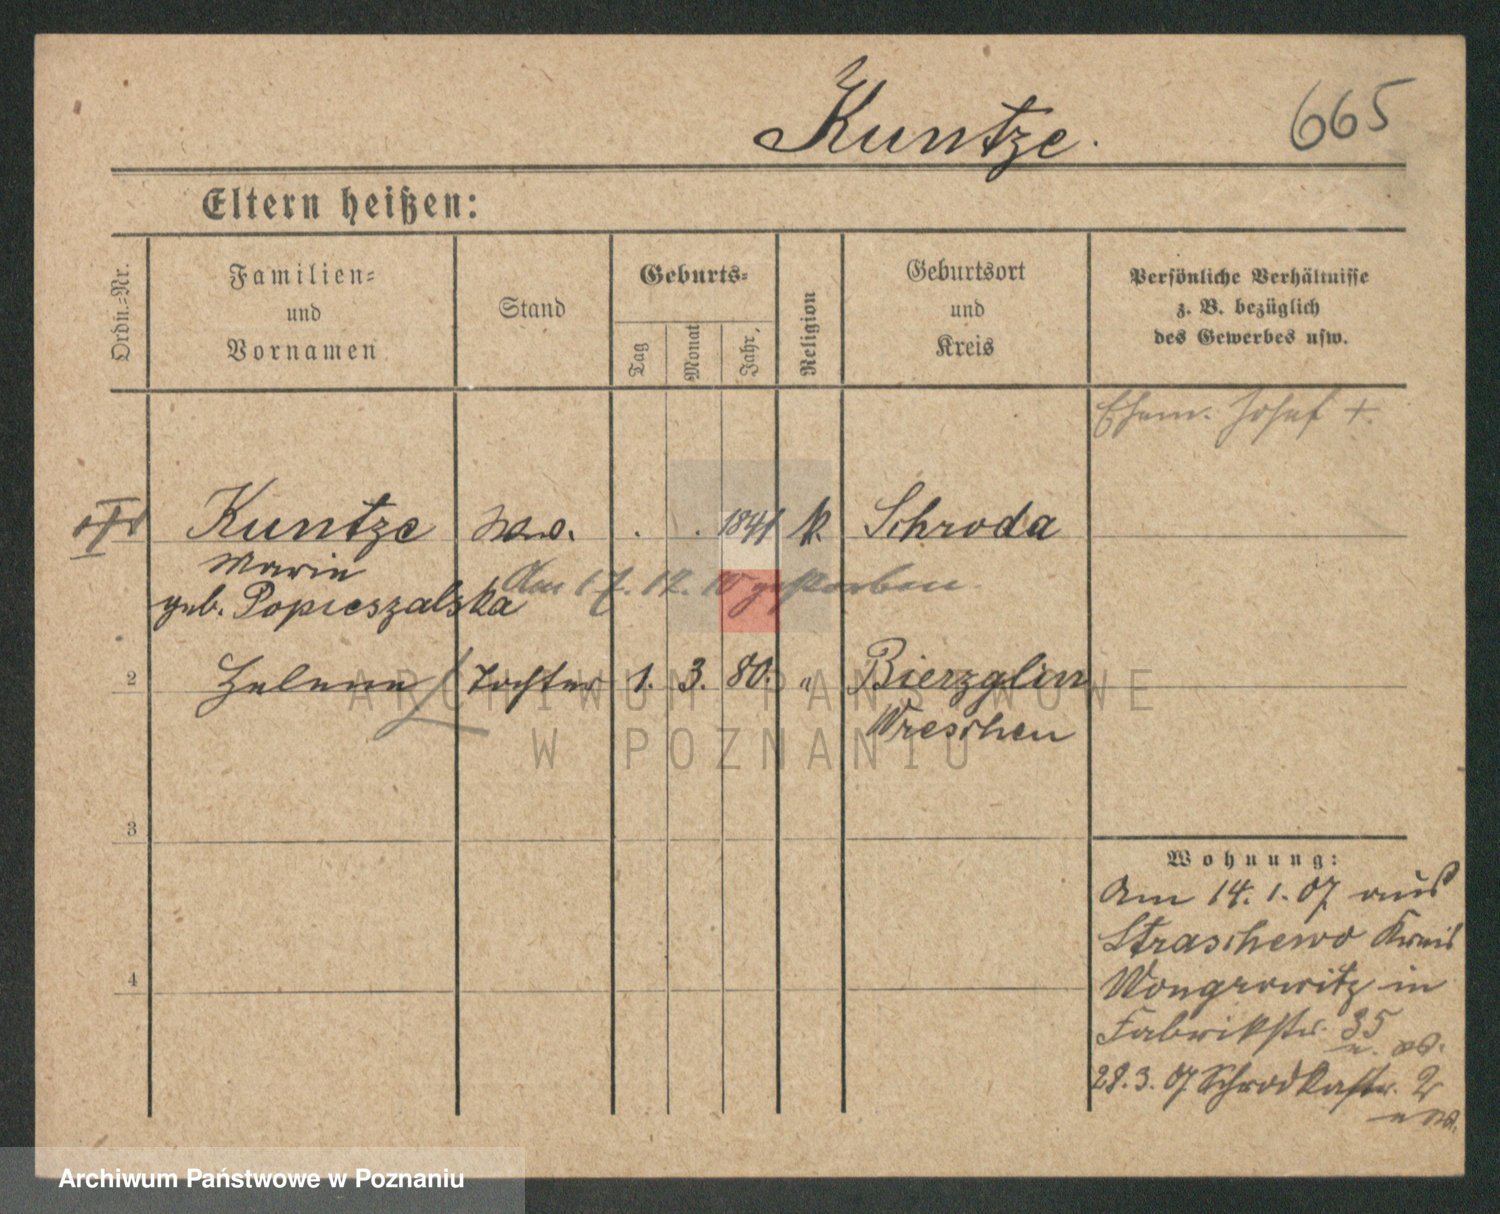 Kuntze.
665
Eltern heißen:
Ordn.-Nr.
Familien-
und
Vornamen
Stand
Geburts-
Tag
Monat
Jahr,
Religion
Geburtsort
und
Kreis
Persönliche Verhältnisse
z. B. bezüglich
des Gewerbes usw.
Ehem. Josef +.
Kuntze Ww. . . 1841 k. Schroda
Marie
Am 17. 12. 10 gestorben
geb. Popieszalska
2 Helene Tochter 1. 3. 80. " Bierzglin
Wreschen
ARCHIWUM PAŃSTWOWE
W POZNANIU
3
4
Wohnung:
Am 14. 1. 07 aus
Straschewo Kreis
Wongrowitz in
Fabrikstr. 35
28. 3. 07 Schrodkastr. 2
Archiwum Państwowe w Poznaniu